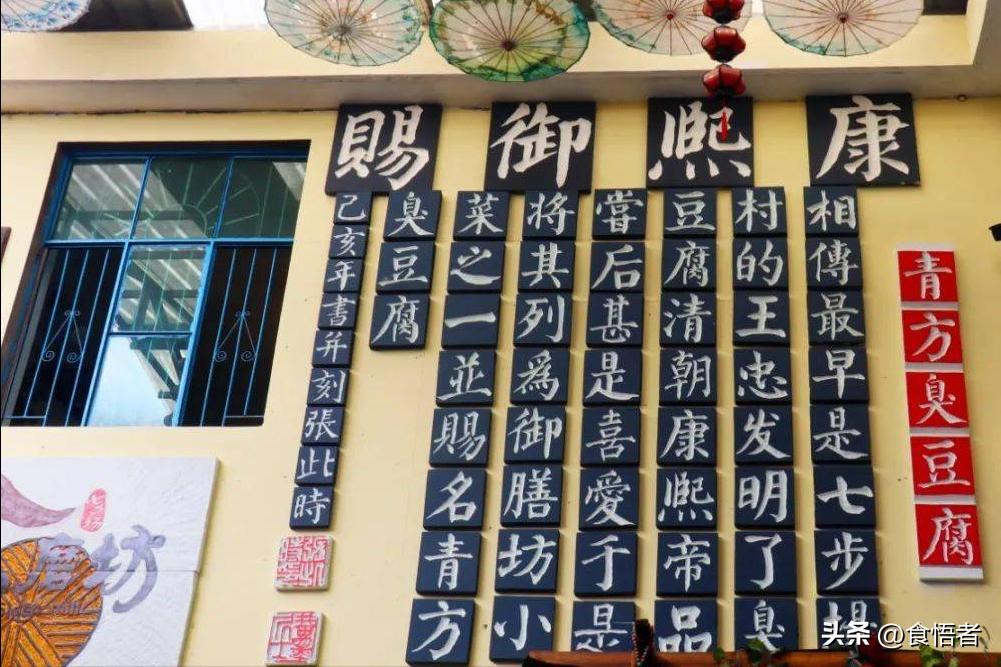 青方臭豆腐
康熙御賜
相傳最早是七步
村的王忠发明了臭
豆腐清朝康熙帝品
嘗后甚是喜愛于是
將其列爲御膳坊小
菜之一並賜名青方
臭豆腐
己亥年書并刻張此時
坊
头条 @食悟者